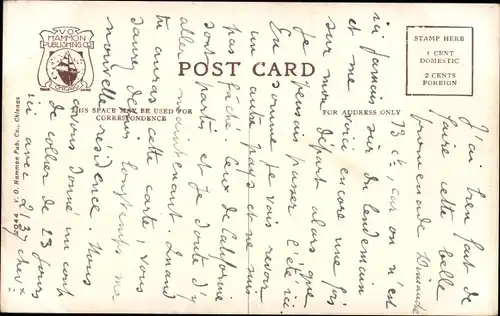 V.O.
HAMMON
PUBLISHING CO.
CHICAGO
POST CARD
THIS SPACE MAY BE USED FOR
CORRESPONDENCE
FOR ADDRESS ONLY
STAMP HERE
1 CENT
DOMESTIC
2 CENTS
FOREIGN
V. O. Hammon Pub. Co., Chicago
J'ai bien fait de
faire cette belle
promenade Dimanche
13 ct, car on n'est
ici jamais sûr du lendemain
et me voici encore une fois
sur mon départ alors que
Je pensais passer l'été ici.
En somme je vais revoir
un autre pays et ne suis
pas fâché. Ceux de Californie
sont partis et Je doute d'y
aller maintenant. Quand
tu auras cette carte, vous
saurez depuis longtemps ma
nouvelle résidence. Nous
avons donné un cont
de collier de 23 jours
ici avec 2137 chevx